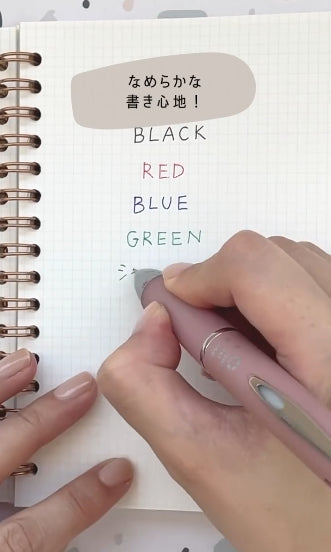 なめらかな
書き心地！
BLACK
RED
BLUE
GREEN
シ